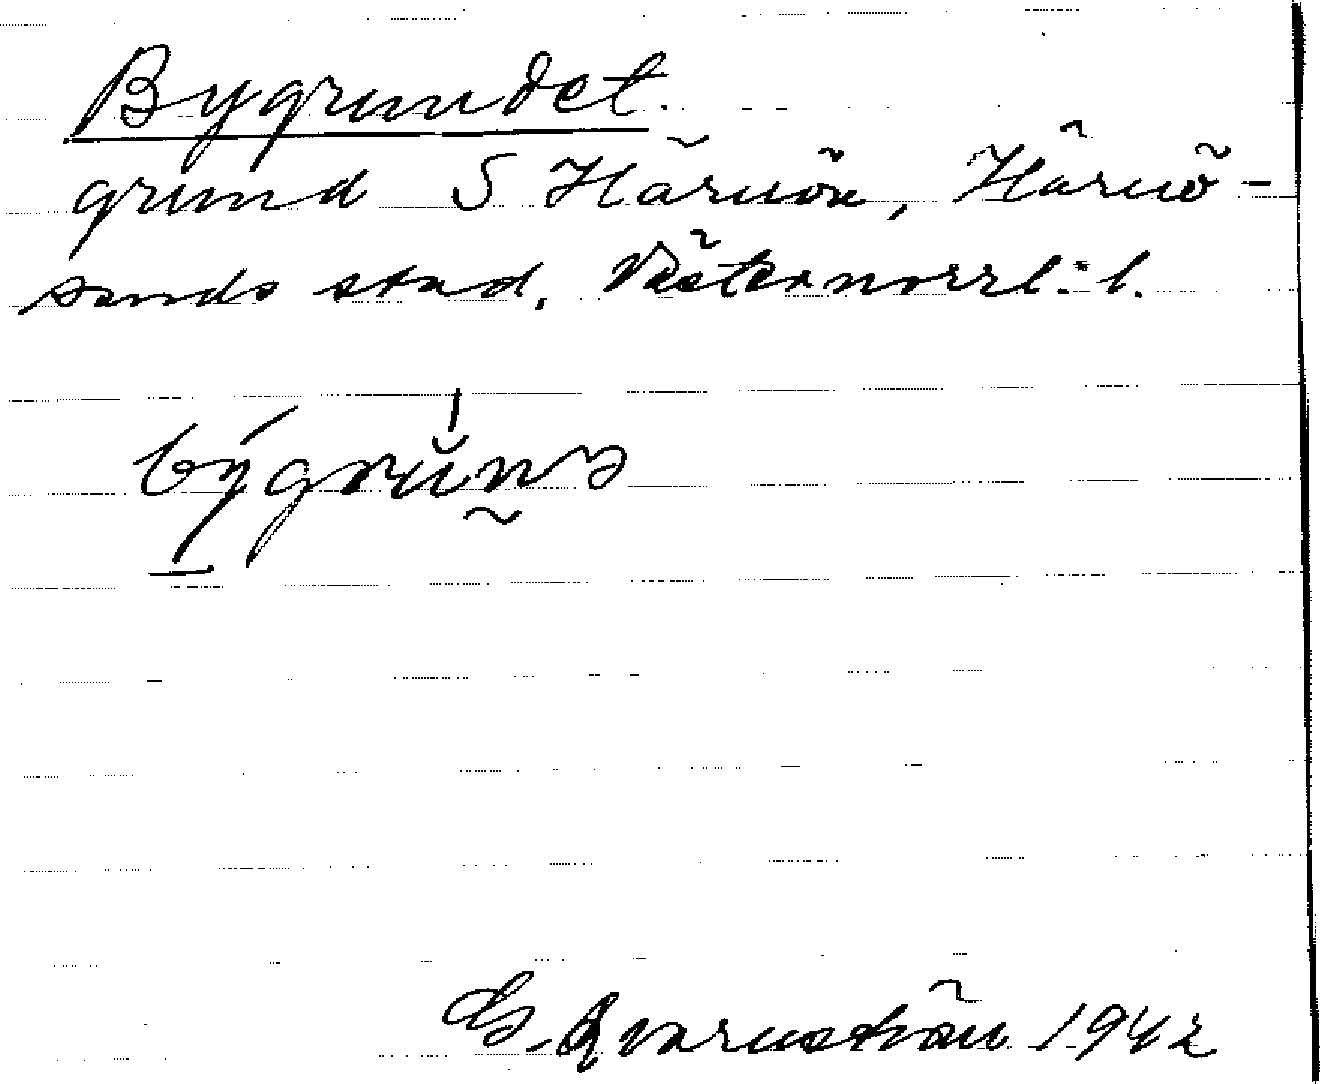 Bygrundet.
grund S Härnön, Härnö-
sands stad, Västernorrl:s l.
býgrŭnə
G. Qvarnström 1942